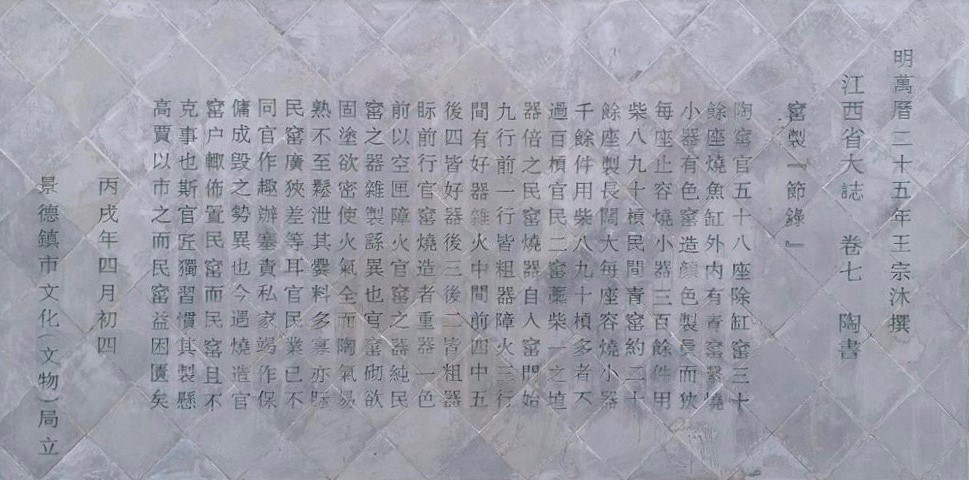 明萬曆二十五年王宗沐撰
江西省大誌 卷七 陶書
窰製『節錄』
陶窰官五十八座除缸窰三十
餘座燒魚缸外内有青窰繫燒
小器有色窰造顔色製員而狹
每座止容燒小器三百餘件用
柴八九十槓民間青窰約二十
餘座製長闊大每座容燒小器
千餘件用柴八九十槓多者不
過百槓官民二窰藁柴一之埴
器倍之民窰燒器自人窰門始
九行前一行皆粗器障火三行
間有好器雜火中間前四中五
後四皆好器後三後二皆粗器
眎前行官窰燒造者重器一色
前以空匣障火官窰之器純民
窰之器雜製繇異也官窰砌欲
固塗欲密使火氣全而陶氣易
熟不至鬆泄其爨料多寡亦眎
民窰廣狹差等耳官民業已不
同官作趣辦塞責私家竭作保
傭成毁之勢異也今遇燒造官
窰户輙佈置民窰而民窰且不
克事也斯官匠獨習慣其製懸
高賈以市之而民窰益困匱矣
丙戌年四月初四
景德鎮市文化(文物)局立